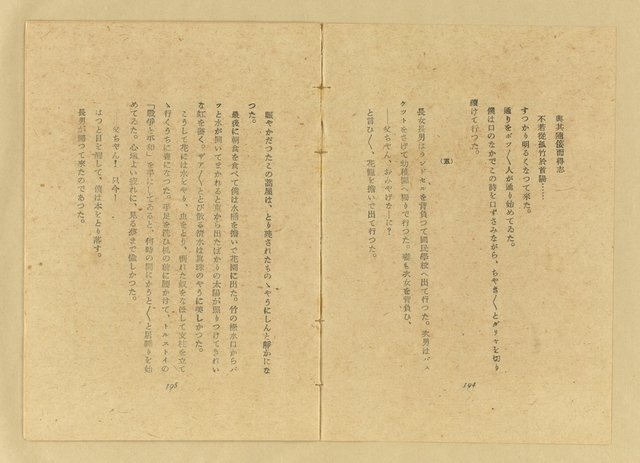 與其隨佞而得志
不若從孤竹於首陽……
すつかり明るくなつて來た。
通りをポツ〳〵人が通り始めてゐた。
僕は口のなかでこの詩を口ずさみながら、ちやき〳〵とダリヤを切り
續けて行つた。
長女長男はランドセルを背負つて國民學校へ出て行つた。次男はバス
ケツトをさげて幼稚園へ踊りで行つた。妻も次女を背負ひ、
――父ちやん、おみやげなーに？
と言ひ〳〵、花籠を擔いで出て行つた。
194
賑やかだつたこの部屋は、とり殘されたものゝやうにしんと靜かにな
つた。
最後に朝食を食べて僕は水桶を擔いで花園に出た。竹の樋水口からパ
ッと水が開いてまかれると東から出たばかりの太陽が照りつけてきれい
な虹を畫く。ザア〳〵ととび散る淸水は眞珠のやうに美しかつた。
かうして花には水をやり、虫をとり、倒れた奴をなほして支柱を立て
ゝ行くうちに晝になつた。手足を洗ひ机の前に腰かけて、トルストイの
「戰爭と平和」を手にしてゐると、何時の間にかうと〳〵と居眠りを始
めてゐた。心地よい疲れに、見る夢まで愉しかつた。
――父ちやん！只今！
はつと目を醒して、僕は本をとり落す。
長男が歸つて來たのであつた。
195